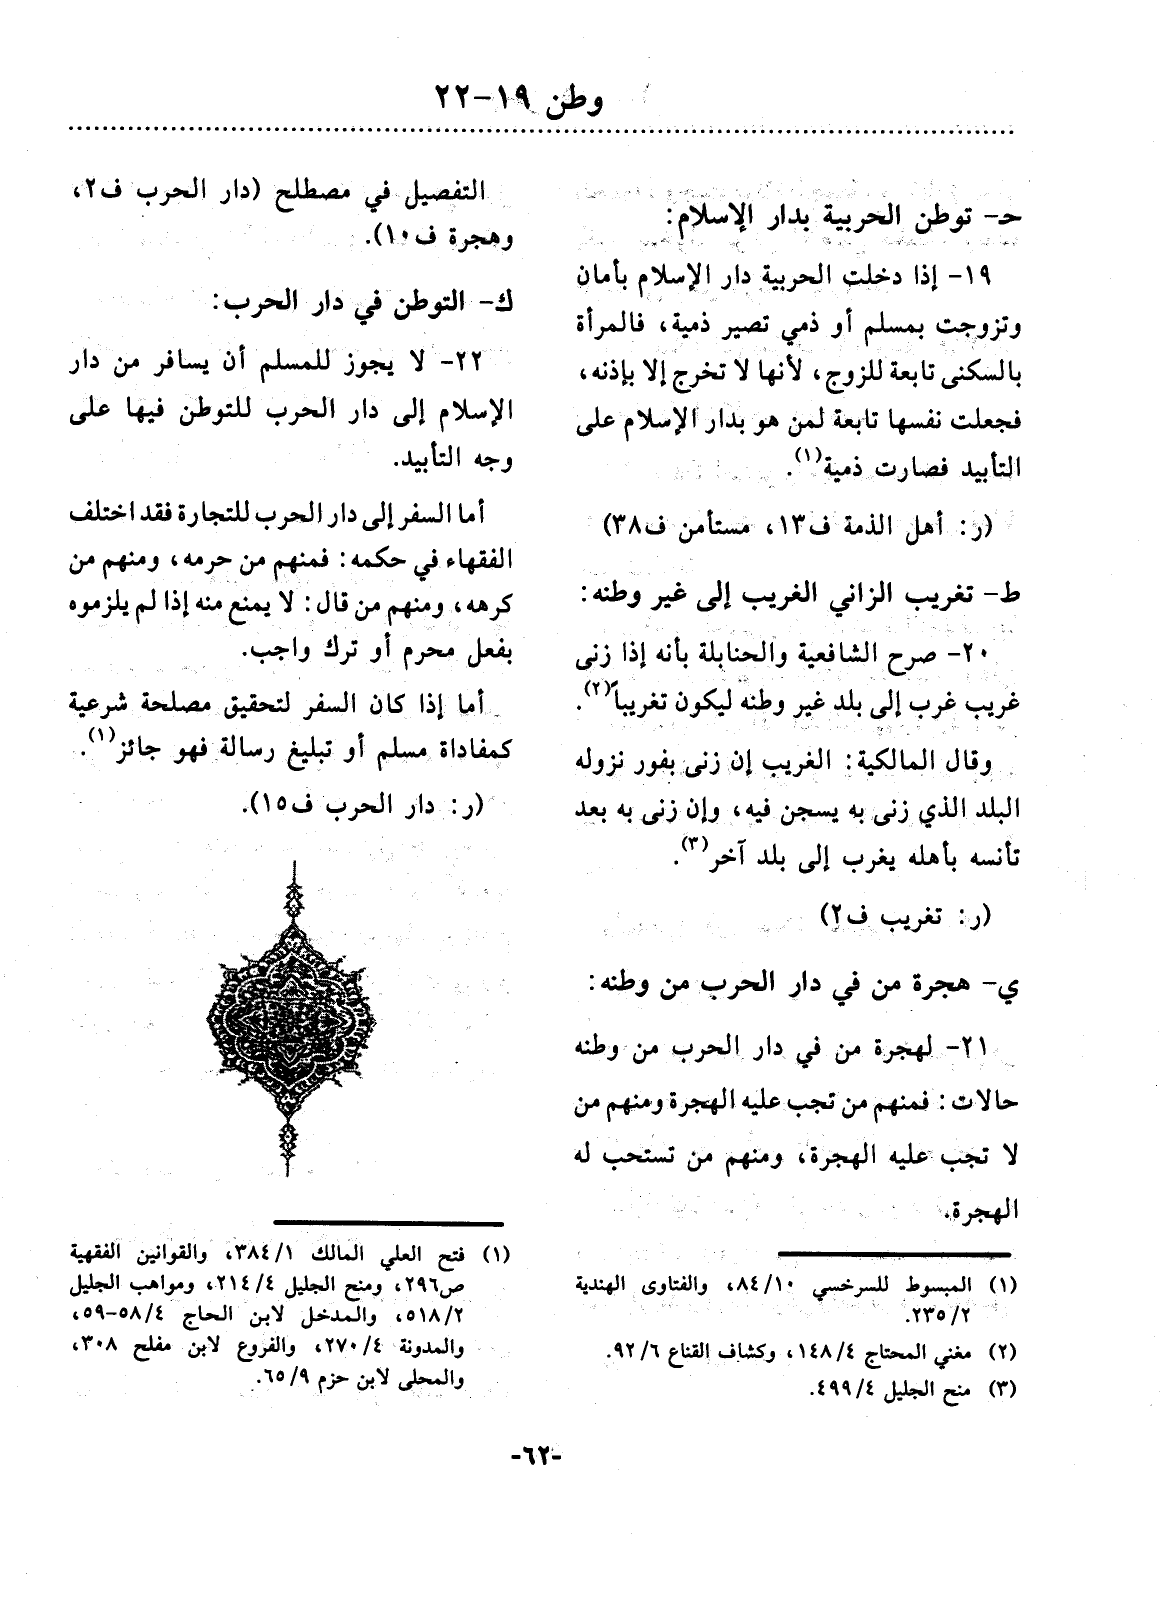 وطن ١٩-٢٢
حـ- توطن الحربية بدار الإسلام:
١٩- إذا دخلت الحربية دار الإسلام بأمان
وتزوجت بمسلم أو ذمي تصير ذمية، فالمرأة
بالسكنى تابعة للزوج، لأنها لا تخرج إلا بإذنه،
فجعلت نفسها تابعة لمن هو بدار الإسلام على
التأبيد فصارت ذمية(١).
(ر: أهل الذمة ف١٣، مستأمن ف٣٨)
ط- تغريب الزاني الغريب إلى غير وطنه:
٢٠- صرح الشافعية والحنابلة بأنه إذا زنى
غريب غرب إلى بلد غير وطنه ليكون تغريباً(٢).
وقال المالكية: الغريب إن زنى بفور نزوله
البلد الذي زنى به يسجن فيه، وإن زنى به بعد
تأنسه بأهله يغرب إلى بلد آخر(٣).
(ر: تغريب ف٢)
ي- هجرة من في دار الحرب من وطنه:
٢١- لهجرة من في دار الحرب من وطنه
حالات: فمنهم من تجب عليه الهجرة ومنهم من
لا تجب عليه الهجرة، ومنهم من تستحب له
الهجرة.
(١) المبسوط للسرخسي ٨٤/١٠، والفتاوى الهندية
٢٣٥/٢.
(٢) مغني المحتاج ١٤٨/٤، وكشاف القناع ٩٢/٦.
(٣) منح الجليل ٤٩٩/٤.
التفصيل في مصطلح (دار الحرب ف٢،
وهجرة ف١٠).
ك- التوطن في دار الحرب:
٢٢- لا يجوز للمسلم أن يسافر من دار
الإسلام إلى دار الحرب للتوطن فيها على
وجه التأبيد.
أما السفر إلى دار الحرب للتجارة فقد اختلف
الفقهاء في حكمه: فمنهم من حرمه، ومنهم من
كرهه، ومنهم من قال: لا يمنع منه إذا لم يلزموه
بفعل محرم أو ترك واجب.
أما إذا كان السفر لتحقيق مصلحة شرعية
كمفاداة مسلم أو تبليغ رسالة فهو جائز(١).
(ر: دار الحرب ف١٥).
(١) فتح العلي المالك ٣٨٤/١، والقوانين الفقهية
ص٢٩٦، ومنح الجليل ٢١٤/٤، ومواهب الجليل
٥١٨/٢، والمدخل لابن الحاج ٥٨/٤-٥٩،
والمدونة ٢٧٠/٤، والفروع لابن مفلح ٣٠٨،
والمحلى لابن حزم ٦٥/٩.
-٦٢-